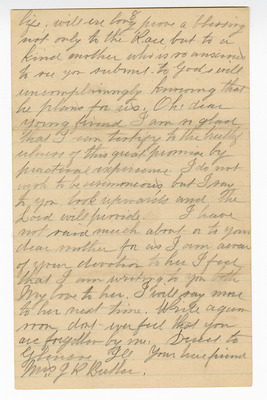 life, will ere long prove a blessing
not only to the Race but to a
kind mother who is so anxious
to see you submit to God's will
uncomplainingly knowing that
he plans for us. Oh dear
young friend I am so glad
that I can testify to the truth
ulness of this great promise by
practical experience I do not
wish to be sermoneous but I say
to you look upwards and the
Lord will provide. I have
not said much about or to your
dear mother for as I am aware
of your devotion to her I feel
that I am writing to you both
My love to her, I will say more
to her next time. Write again
soon, dont ever feel that you
are forgotten by me. Direct to
Your true friend
Mrs J. R. Butler.